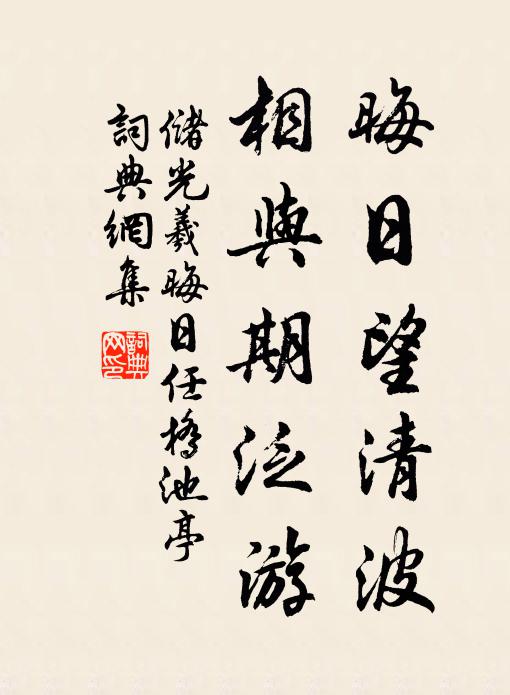 晦日望清波
相與期泛游
儲光羲晦日任橋池亭
詞典網集
詞典網印